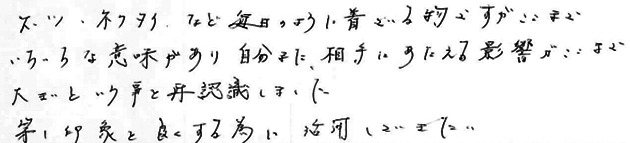 スーツ、ネクタイ、など毎日のように着ている物ですがここまで
いろいろな意味があり自分また、相手にあたえる影響がここまで
大きいという事を再認識しました
第1印象を良くする為に活用していきたい